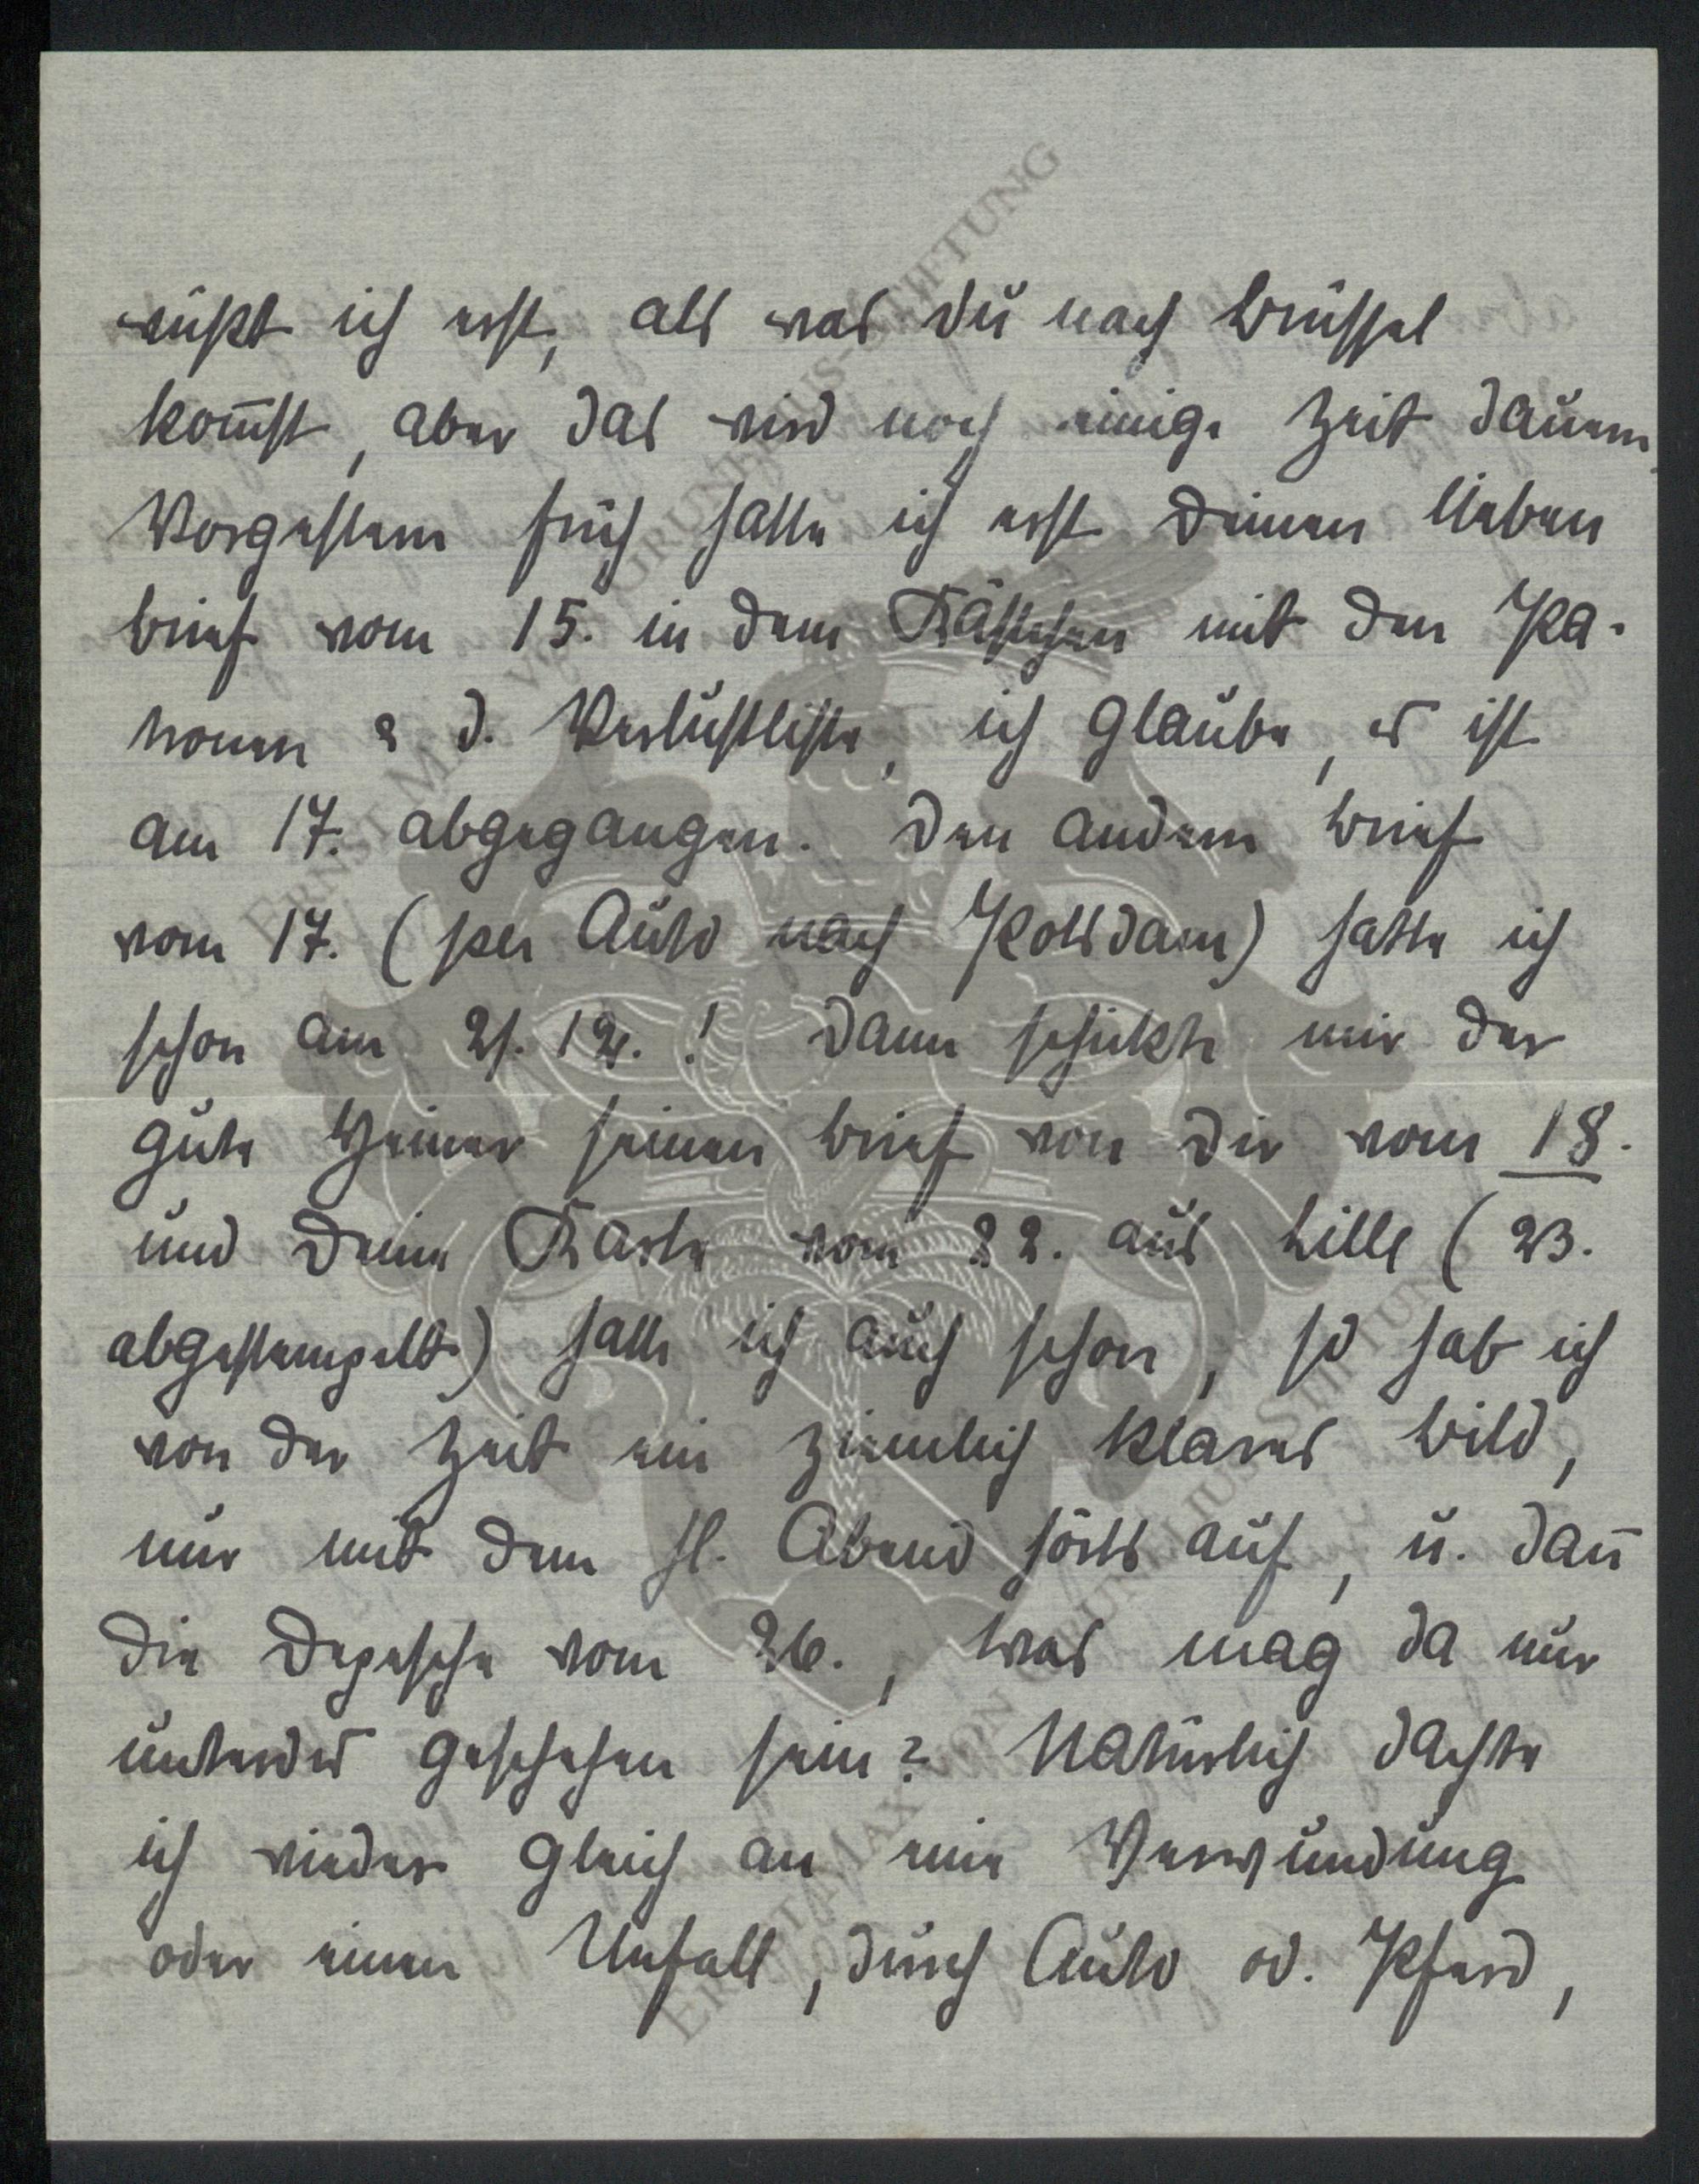 wüßt ich erst, als was Du nach Brüssel
kom̅st, aber das wird noch einige Zeit dauern,
Vorgestern früh hatte ich erst Deinen lieben
Brief vom 15. in dem Kästchen mit den Pa-
tronen & d. Verlustliste, ich glaube, es ist
am 17. abgegangen. Den andern Brief
vom 17. (per Auto nach Potsdam) hatte ich
schon am 21. 12.! Dann schickte mir der
gute Heiner seinen Brief von Dir vom 18.
und Deine Karte vom 22. aus Lille (23.
abgestempelt) hatte ich auch schon, so hab ich
von der Zeit ein ziemlich klares Bild,
nur mit dem hl. Abend hörts auf, u. dan̅
die Depesche vom 26., was mag da nur
unterdes geschehen sein? Natürlich dachte
ich wieder gleich an eine Verwundung
oder einen Unfall, durch Auto od. Pferd,
ERNST MAX VON GRUNELIUS-STIFTUNG
ERNST MAX VON GRUNELIUS-STIFTUNG